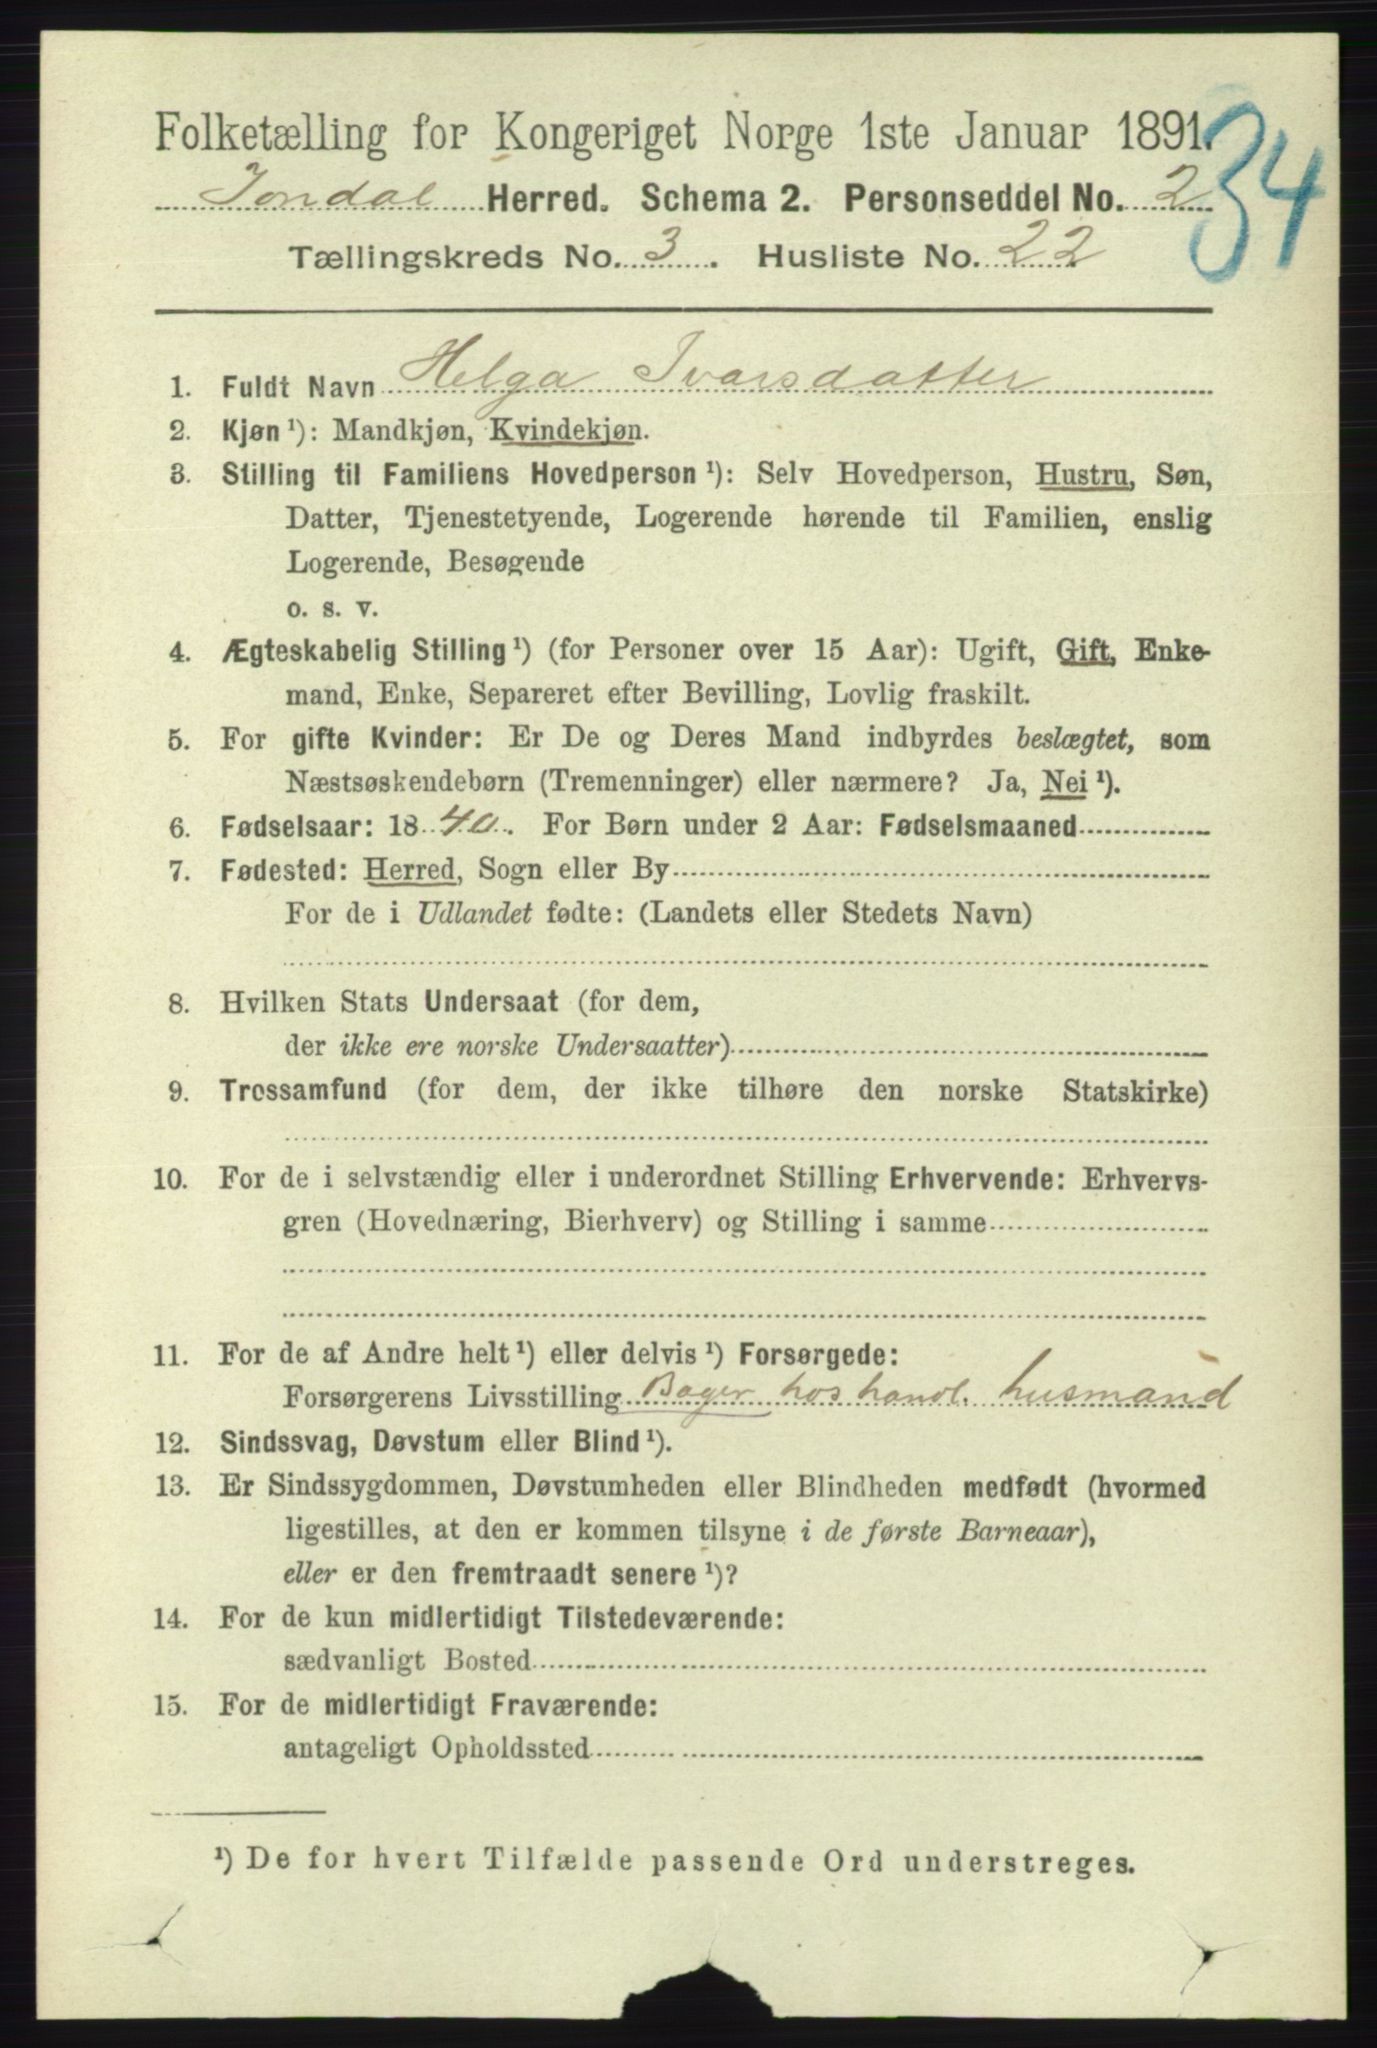 Folketælling for Kongeriget Norge 1ste Januar 1891.
34
Jondal Herred. Schema 2. Personseddel No. 2
Tællingskreds No. 3. Husliste No. 22
1. Fuldt Navn Helga Ivarsdatter
2. Kjøn ¹): Mandkjøn, Kvindekjøn.
3. Stilling til Familiens Hovedperson ¹): Selv Hovedperson, Hustru, Søn,
Datter, Tjenestetyende, Logerende hørende til Familien, enslig
Logerende, Besøgende
o. s. v.
4. Ægteskabelig Stilling ¹) (for Personer over 15 Aar): Ugift, Gift, Enke-
mand, Enke, Separeret efter Bevilling, Lovlig fraskilt.
5. For gifte Kvinder: Er De og Deres Mand indbyrdes beslægtet, som
Næstsøskendebørn (Tremenninger) eller nærmere? Ja, Nei ¹).
6. Fødselsaar: 1840. For Børn under 2 Aar: Fødselsmaaned
7. Fødested: Herred, Sogn eller By
For de i Udlandet fødte: (Landets eller Stedets Navn)
8. Hvilken Stats Undersaat (for dem,
der ikke ere norske Undersaatter)
9. Trossamfund (for dem, der ikke tilhøre den norske Statskirke)
10. For de i selvstændig eller i underordnet Stilling Erhvervende: Erhvervs-
gren (Hovednæring, Bierhverv) og Stilling i samme
11. For de af Andre helt ¹) eller delvis ¹) Forsørgede:
Forsørgerens Livsstilling Bager hos handl. husmand
12. Sindssvag, Døvstum eller Blind ¹).
13. Er Sindssygdommen, Døvstumheden eller Blindheden medfødt (hvormed
ligestilles, at den er kommen tilsyne i de første Barneaar),
eller er den fremtraadt senere ¹)?
14. For de kun midlertidigt Tilstedeværende:
sædvanligt Bosted
15. For de midlertidigt Fraværende:
antageligt Opholdssted
¹) De for hvert Tilfælde passende Ord understreges.